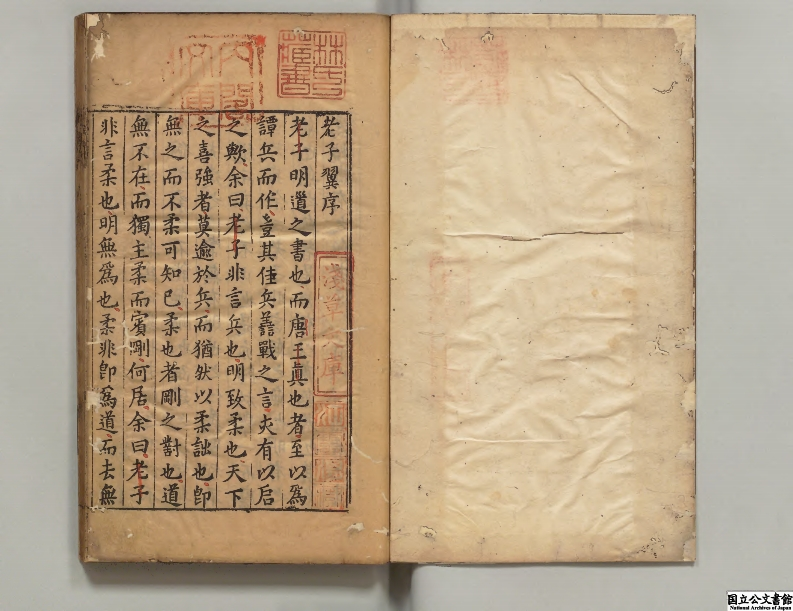 老子翼序
老子明道之書也而唐王真也者至以爲
譚兵而作豈其佳兵善戰之言亦有以启
之歟余曰老子非言兵也明致柔也天下
之喜強者莫逾於兵而猶然以柔詘也卽
無之而不柔可知已柔也者剛之對也道
無不在而獨主柔而賓剛何居余曰老子
非言柔也明無爲也柔非卽爲道而去無
林氏藏書
淺草文庫
国立公文書館
National Archives of Japan